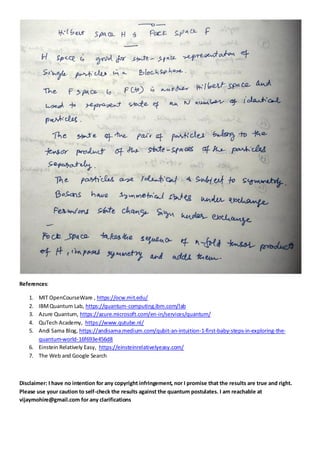 Hilbert space H & Fock space F
H space is good for state-space representation of
Single particles in a Blochsphere.
The F space is F(H) is another Hilbert space and
used to represent state of an N number of identical
particles.
The state of the pair of particles belong to the
tensor product of the state-spaces of the particles
separately.
The particles are identical & subject to symmetry.
Bosons have symmetrical states under exchange
Fermions state change sign under exchange
Fock space takes the sequence of n-fold tensor products
of H, imposes symmetry and adds them.
References:
1. MIT OpenCourseWare , https://ocw.mit.edu/
2. IBM Quantum Lab, https://quantum-computing.ibm.com/lab
3. Azure Quantum, https://azure.microsoft.com/en-in/services/quantum/
4. QuTech Academy, https://www.qutube.nl/
5. Andi Sama Blog, https://andisama.medium.com/qubit-an-intuition-1-first-baby-steps-in-exploring-the-
quantum-world-16f693e456d8
6. Einstein Relatively Easy, https://einsteinrelativelyeasy.com/
7. The Web and Google Search
Disclaimer: I have no intention for any copyright infringement, nor I promise that the results are true and right.
Please use your caution to self-check the results against the quantum postulates. I am reachable at
vijaymohire@gmail.com for any clarifications